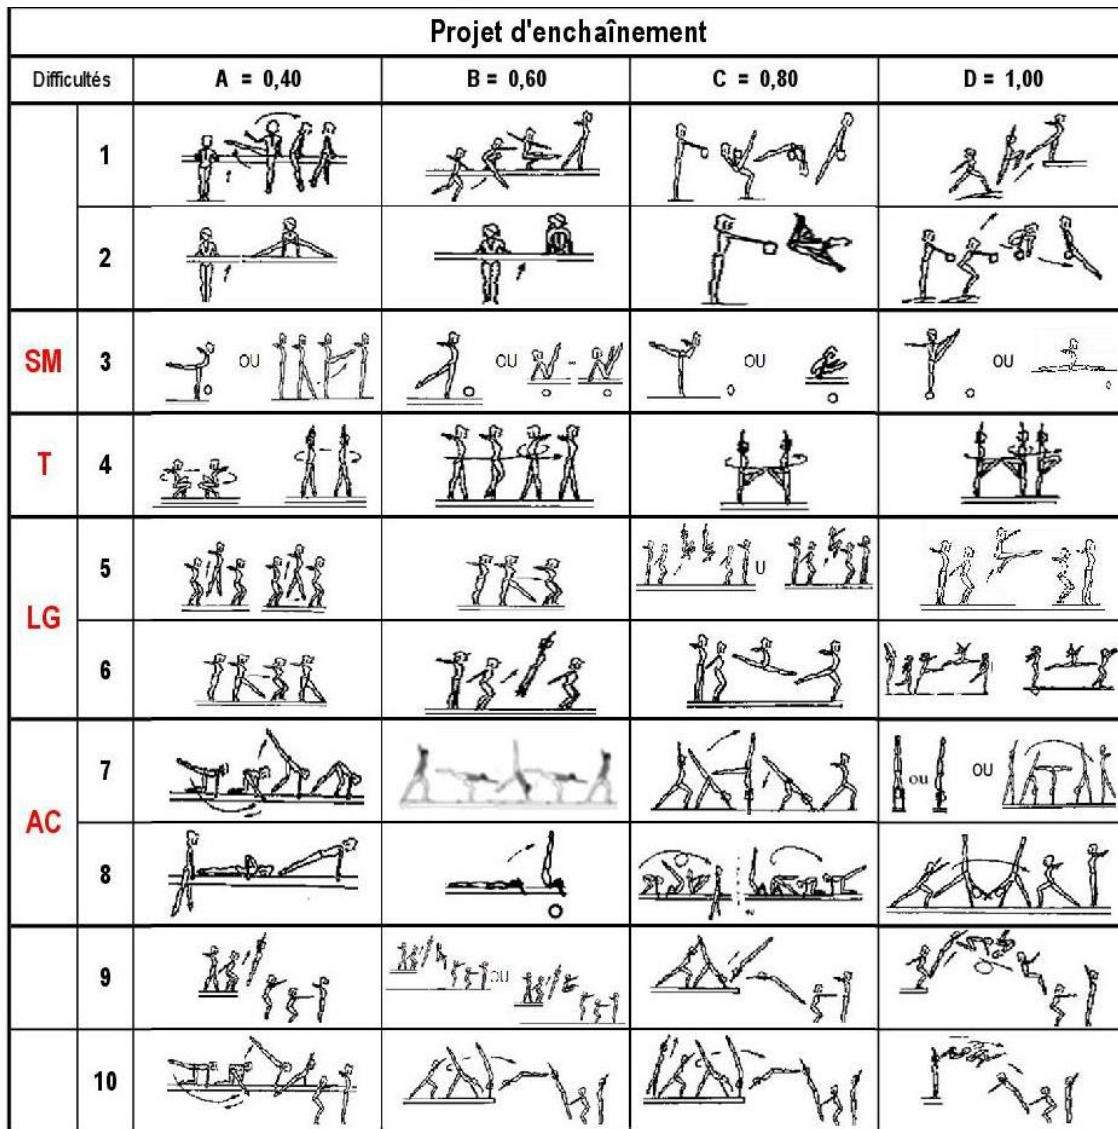 Projet d'enchaînement
Difficultés A = 0,40 B = 0,60 C = 0,80 D = 1,00
1
2
SM 3 OU OU OU OU
T 4
5 U
LG
6
7 ou OU
AC
8
9 OU
10